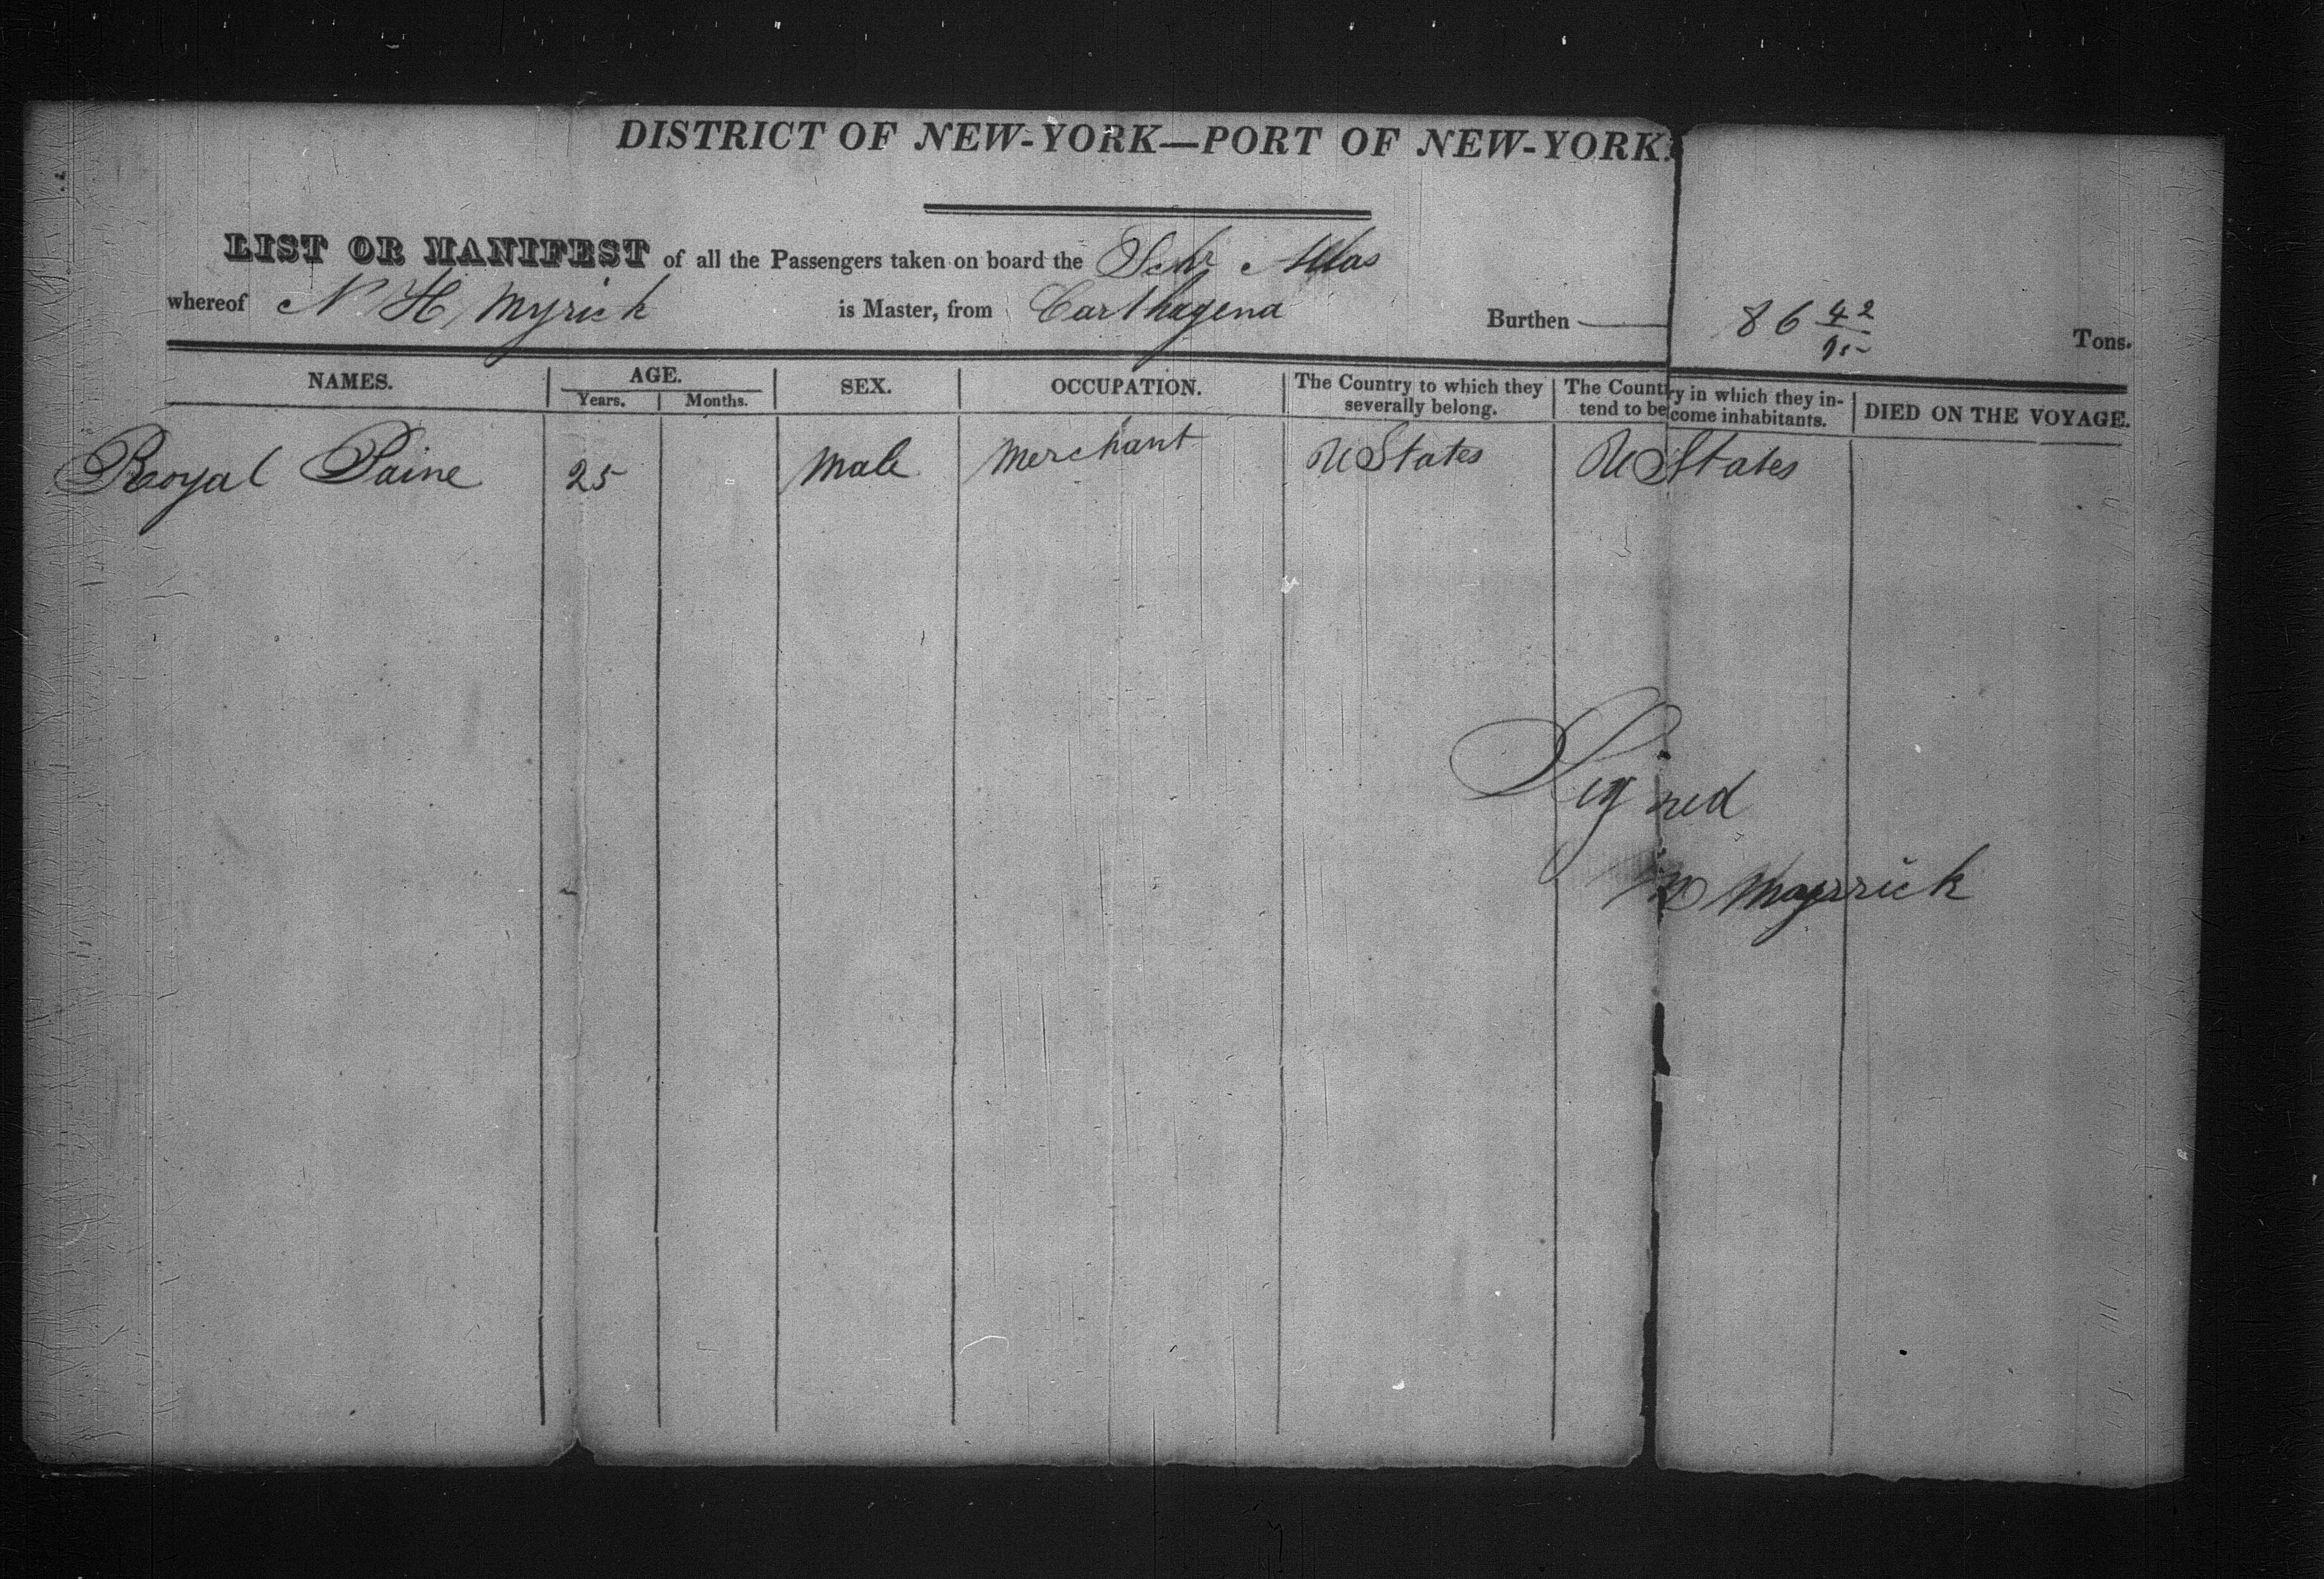 DISTRICT OF NEW-YORK—PORT OF NEW-YORK.
LIST OR MANIFEST of all the Passengers taken on board the Schr Atlas
whereof N H Myrick is Master, from Carthagena Burthen 86 42/95 Tons.
NAMES. AGE. SEX. OCCUPATION. The Country to which they severally belong. The Country in which they intend to become inhabitants. DIED ON THE VOYAGE.
Years. Months.
Royal Paine 25 Male Merchant U States U States
Signed
Myrrick